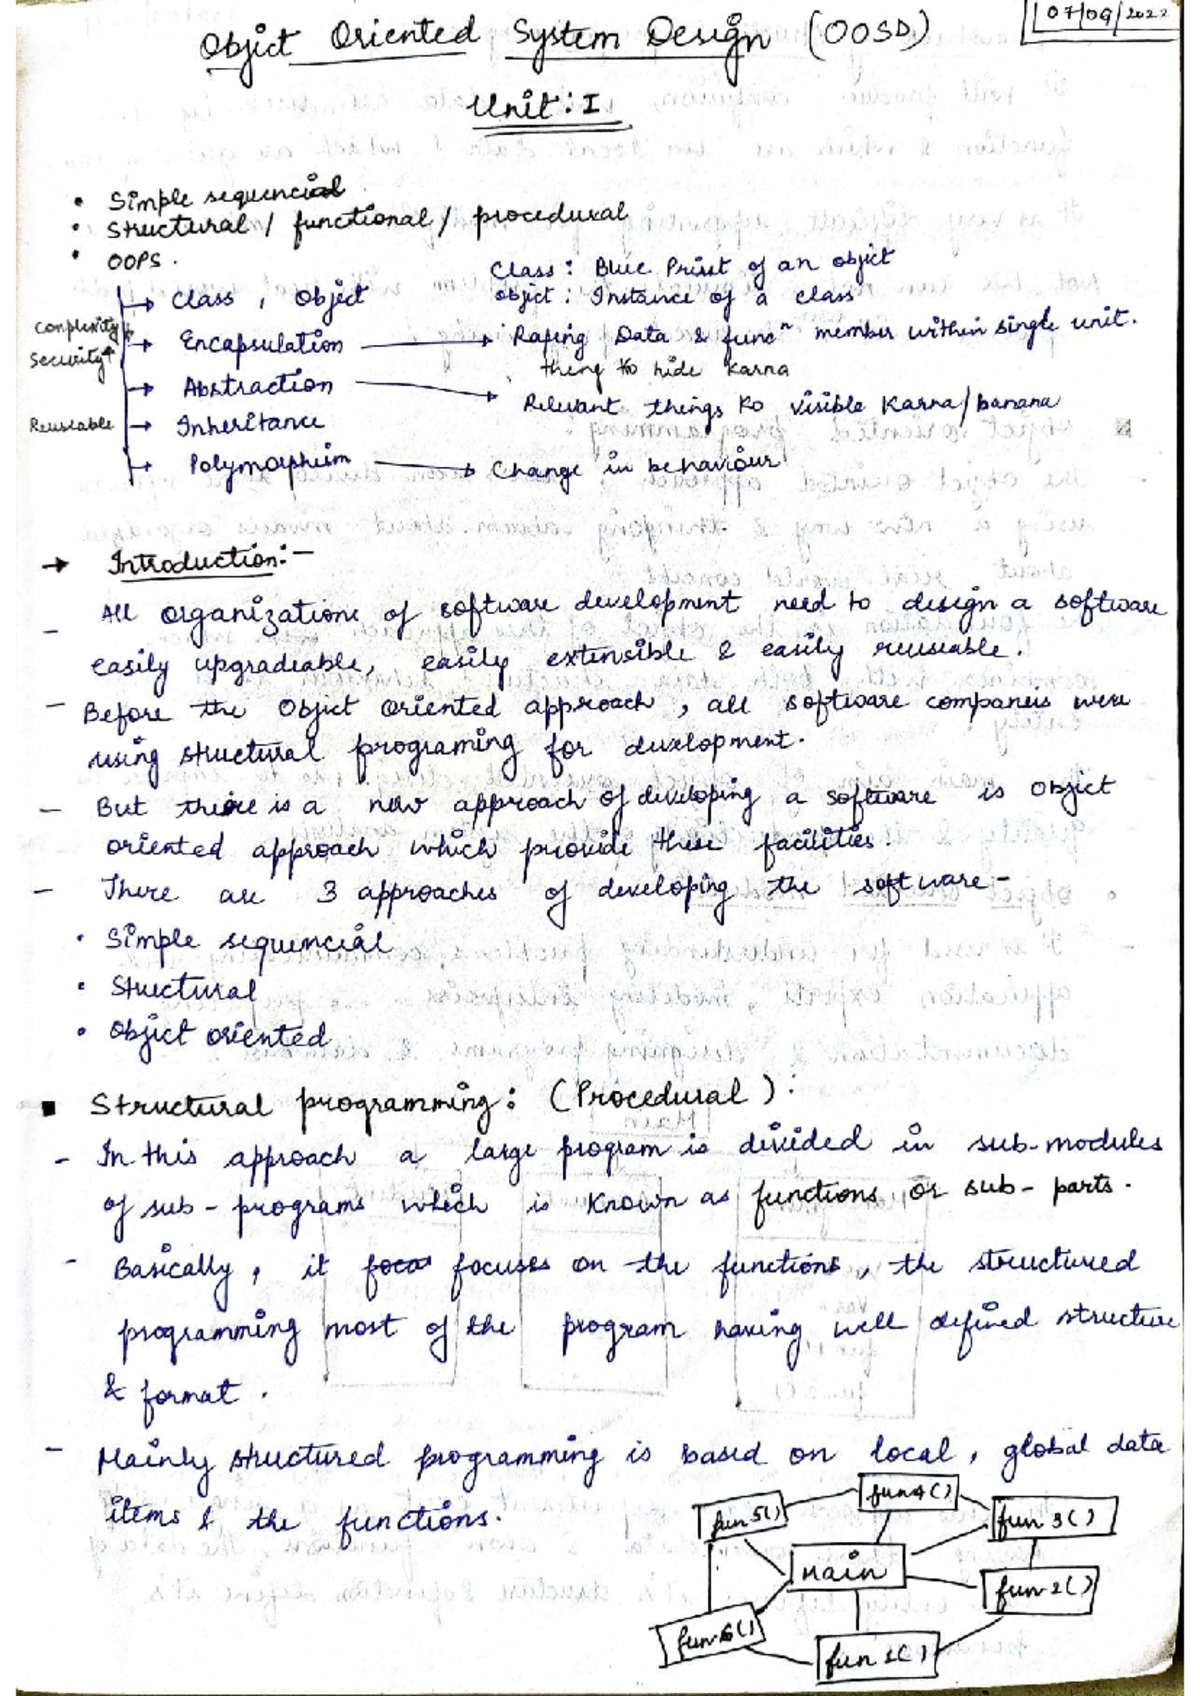 07/09/2022
Object Oriented System Design (OOSD)
Unit: I
• Simple sequencial
• Structural / functional / procedural
• OOPS.
Class : Blue Print of an object
→ Class , Object
object : Instance of a class
Complexity↓
Security↑
→ Encapsulation → Raping Data & funcⁿ member within single unit.
thing ko hide karna
→ Abstraction → Relevant things ko visible karna/banana
Reuseable → Inheritance
→ Polymorphism → Change in behaviour
→ Introduction:-
- All organizations of software development need to design a software
easily upgradeable, easily extensible & easily reuseable.
- Before the Object oriented approach, all software companeis were
using structural programing for development.
- But there is a new approach of developing a software is object
oriented approach which provide these facilities.
- There are 3 approaches of developing the software-
• Simple sequencial
• Structural
• Object oriented
▪ Structural programming: (Procedural):
- In this approach a large program is divided in sub-modules
of sub-programs which is known as functions or sub-parts.
- Basically, it focuses on the functions, the structured
programming most of the program having well defined structure
& format.
- Mainly structured programming is based on local, global data
items & the functions.
fun5() fun4() fun3()
main
fun2()
fun6() fun1()